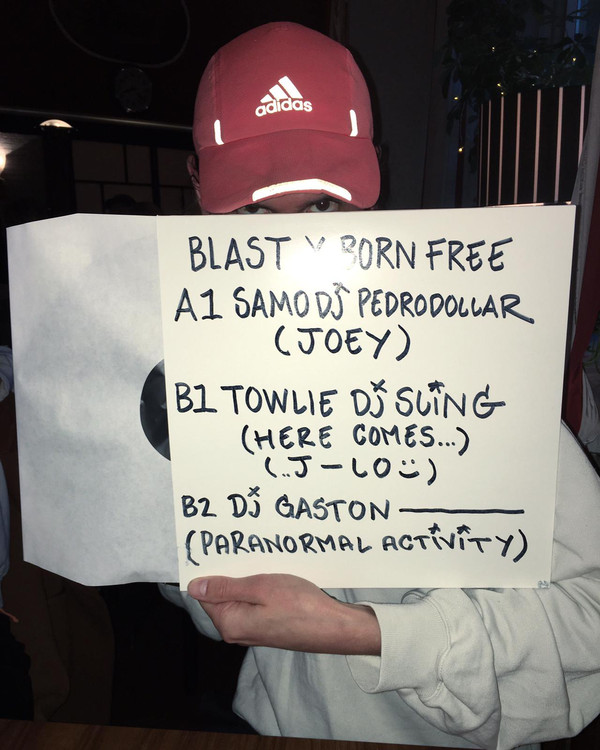 adidas
BLAST X BORN FREE
A1 SAMO DJ PEDRODOLLAR
(JOEY)
B1 TOWLIE DJ SLING
(HERE COMES...)
(..J-LO :))
B2 DJ GASTON ———
(PARANORMAL ACTIVITY)